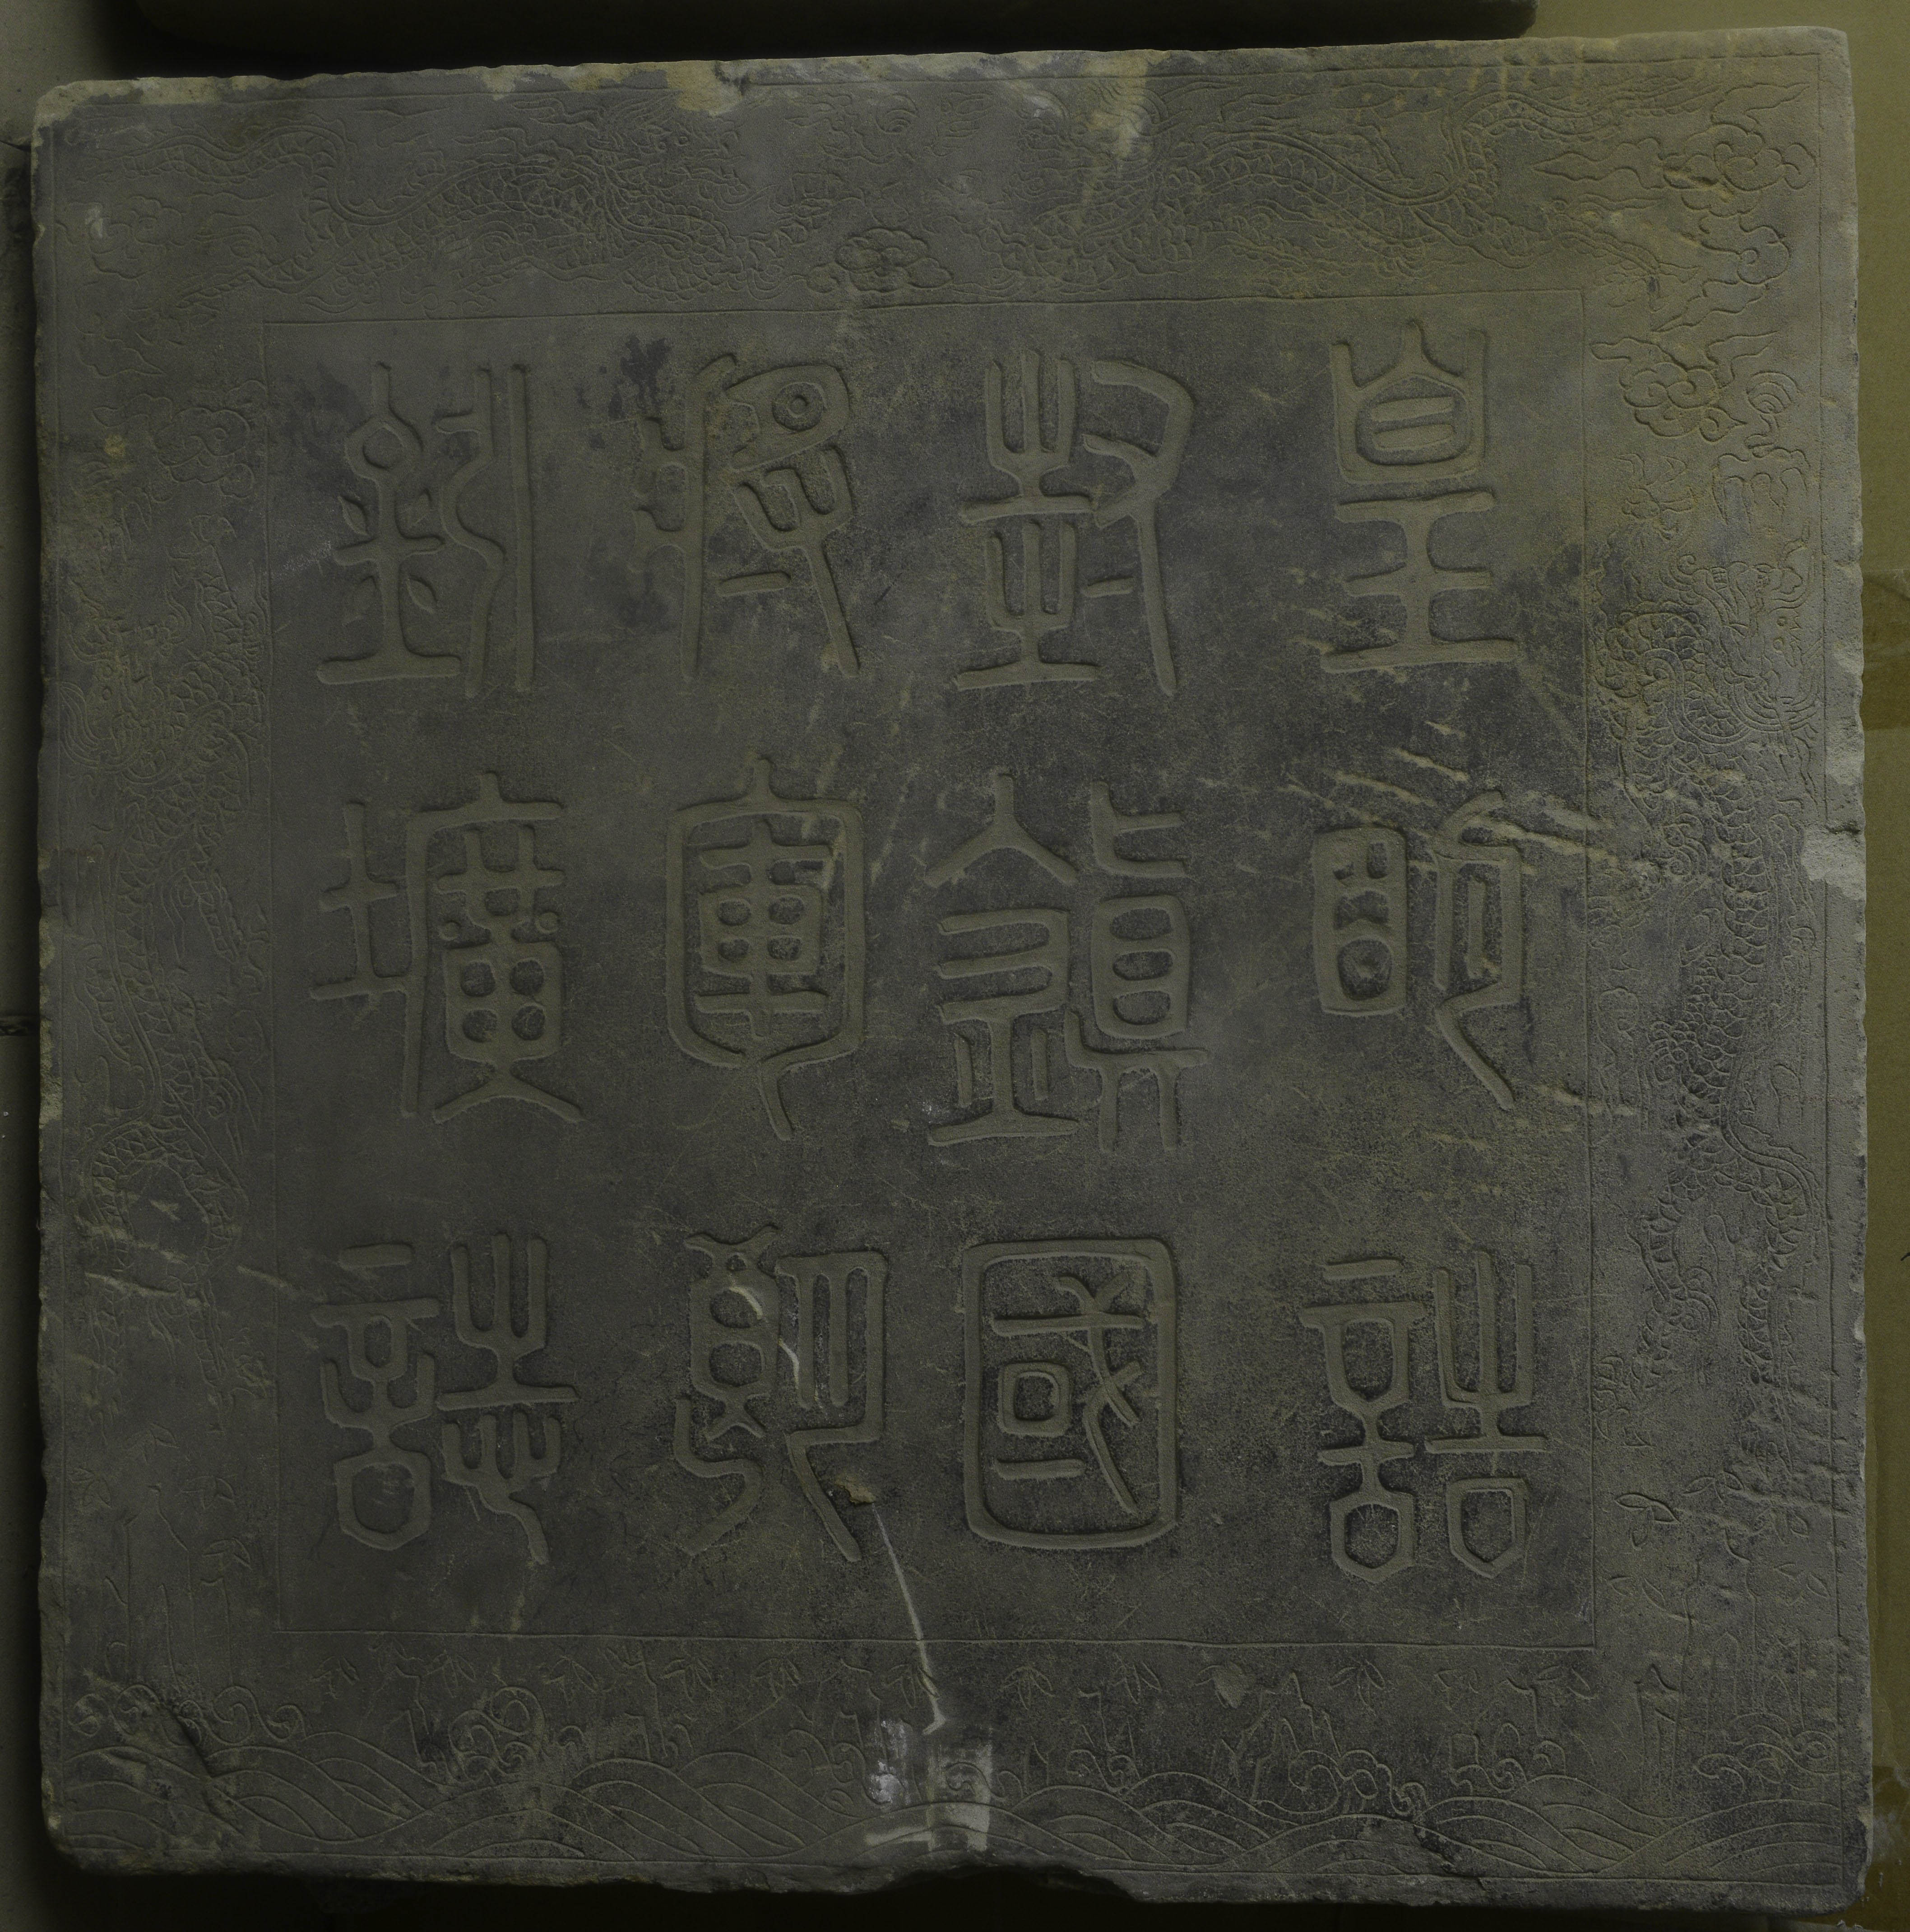 皇明誥
封鎮國
將軍
壙誌